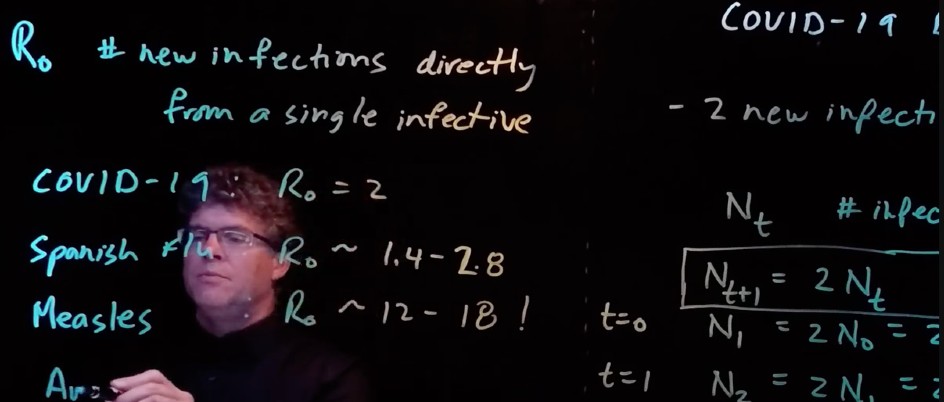 R₀ # new infections directly
from a single infective
COVID-19: R₀ = 2
Spanish Flu R₀ ~ 1.4-2.8
Measles : R₀ ~ 12-18!
COVID-19
- 2 new
N_t #
N_{t+1} = 2 N_t
t=0 N_1 = 2 N_0 =
t=1 N_2 = 2 N_1 =